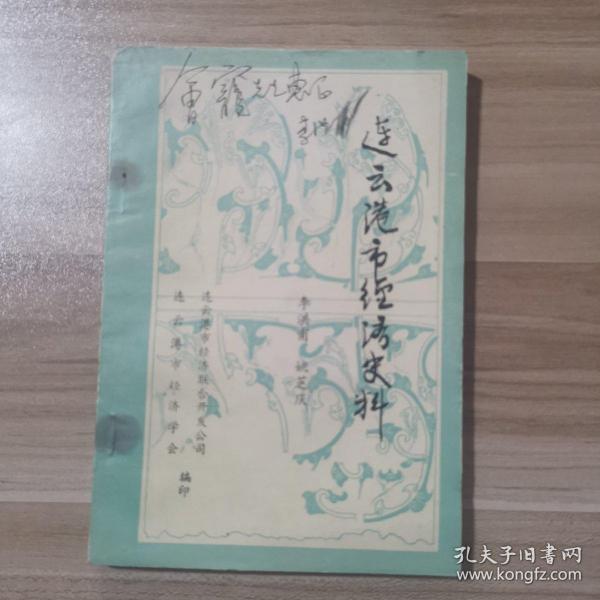 先生惠正
连云港市经济史料
李洪甫 姚芝庆
连云港市经济联合开发公司
连云港市经济学会
编印
孔夫子旧书网
www.kongfz.com